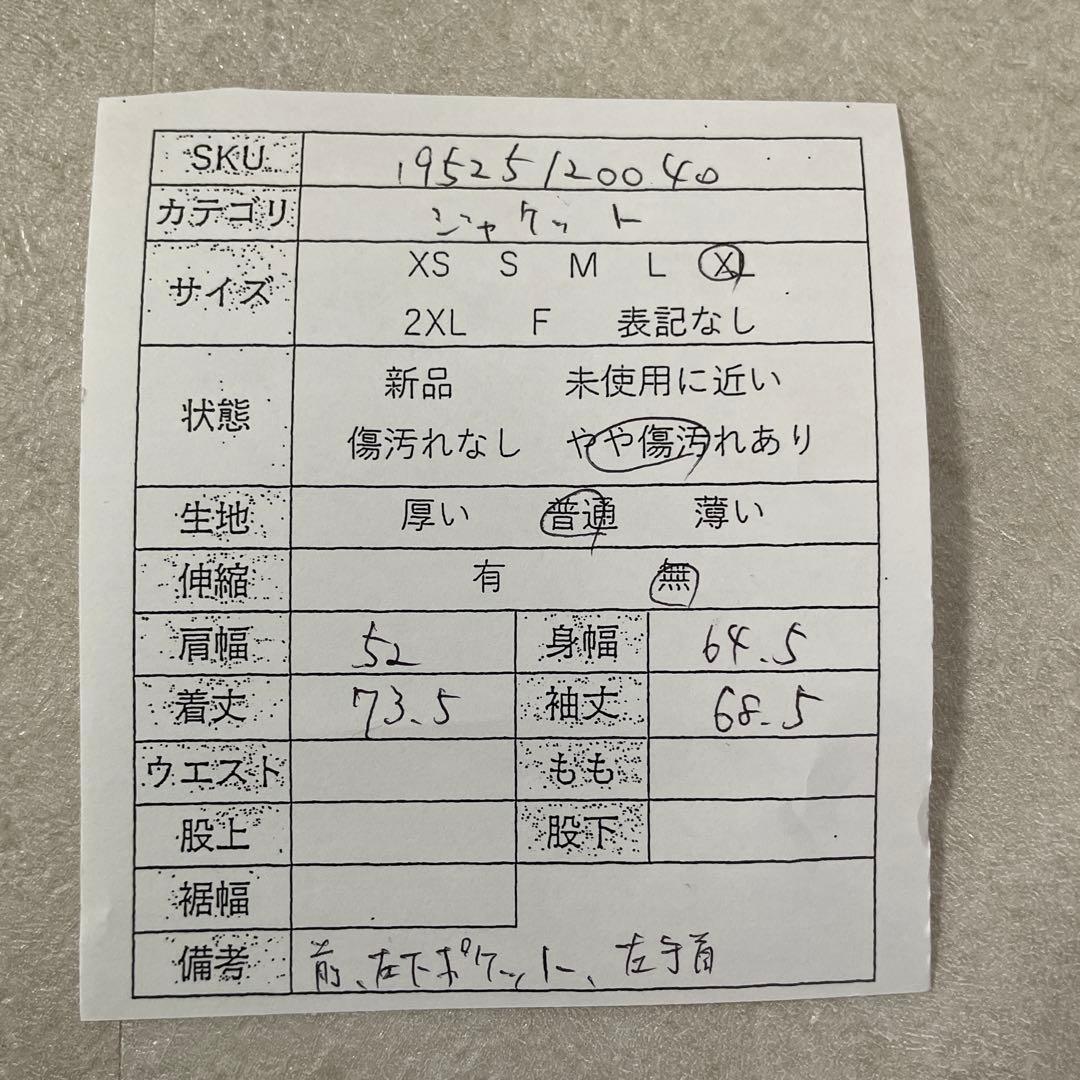 SKU 19525120040
カテゴリ ジャケット
サイズ XS S M L XL
2XL F 表記なし
状態 新品 未使用に近い
傷汚れなし やや傷汚れあり
生地 厚い 普通 薄い
伸縮 有 無
肩幅 52 身幅 64.5
着丈 73.5 袖丈 68.5
ウエスト もも
股上 股下
裾幅
備考 前、左下ポケット、左手首